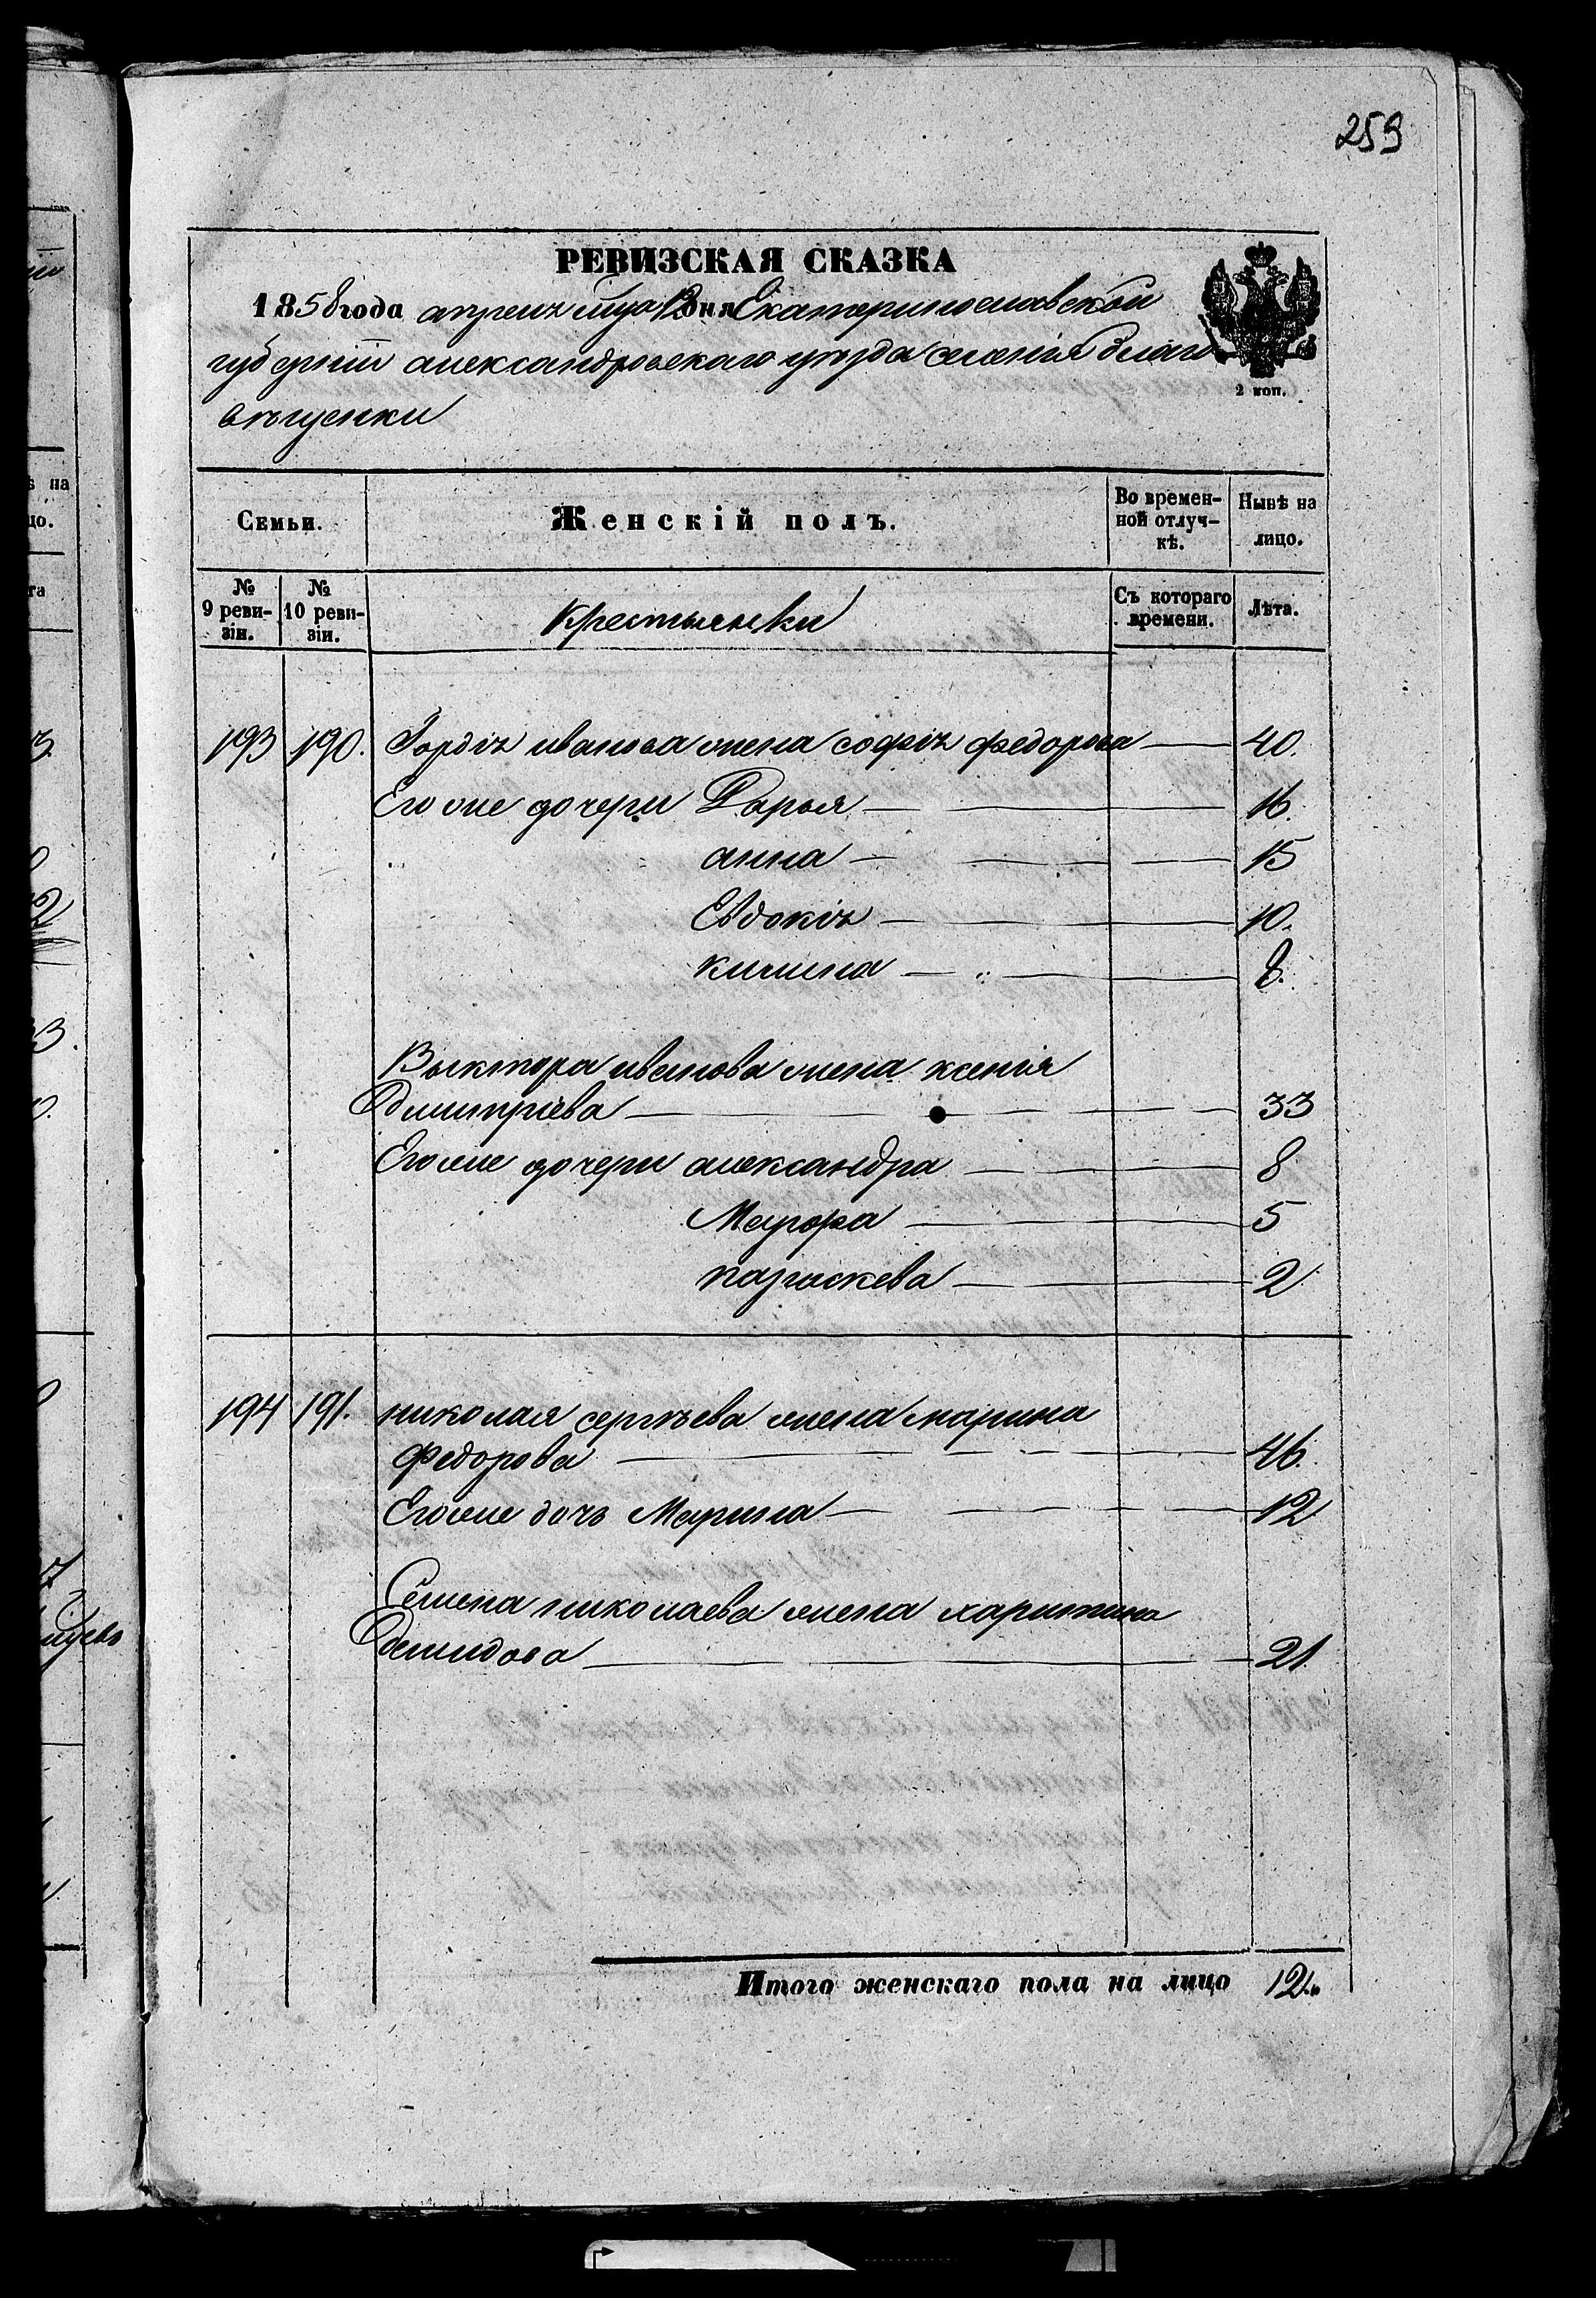 259
РЕВИЗСКАЯ СКАЗКА
1858 года апреля мца 12 дня Екатеринославской
губернiи александровскаго уезда селенiя благо
вещенки
2 коп.
Семьи. Женскiй полъ. Во времен-ной отлуч-кѣ. Нынѣ на лицо.
№ 9 реви-зiи. № 10 реви-зiи. Крестьянки Съ котораго времени. Лѣта.
193 190. Гордiя иванова жена софiя федорова 40.
Его же дочери Дарья 16.
анна 15
Евдокiя 10.
килина 8.
Выктора иванова жена ксенiя
Дмитрiева 33
Его же дочери александра 8
Мавра 5
параскева 2
194 191. николая сергѣева жена марина
федорова 46.
Его же дочь Марина 12
Семена николаева жена харитина
Демидова 21.
Итого женскаго пола на лицо 12.